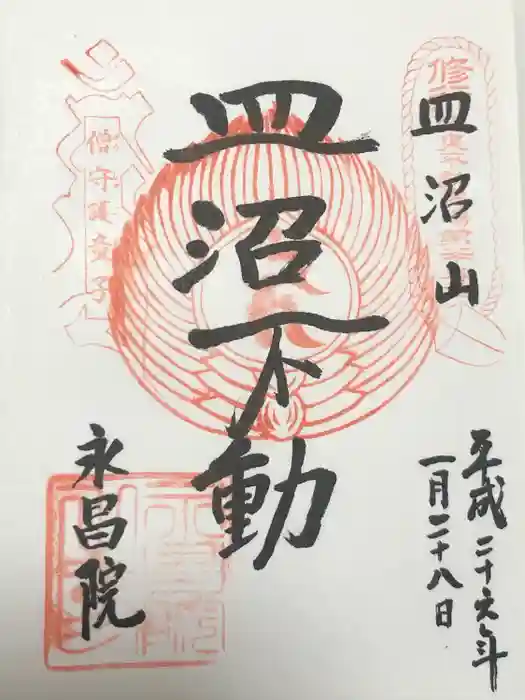 皿沼山
平成二十六年
一月二十八日
皿沼不動
永昌院
僧守護童子